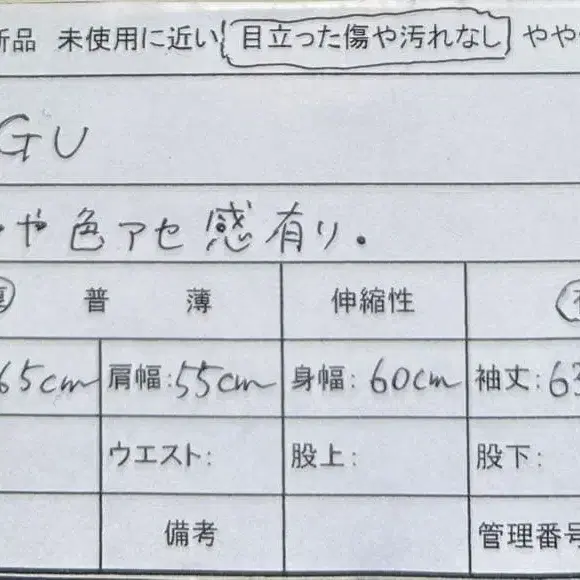 新品 未使用に近い 目立った傷や汚れなし やや
GU
や色アセ感有り。
普 薄 伸縮性
65cm 肩幅:55cm 身幅:60cm 袖丈:63
ウエスト: 股上: 股下:
備考 管理番号